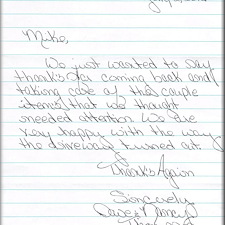 Mike,
We just wanted to say
thanks for coming back and
taking care of the couple
items that we thought
needed attention. We are
very happy with the way
the driveway turned out.
Thanks Again
Sincerely
Dave & Nancy